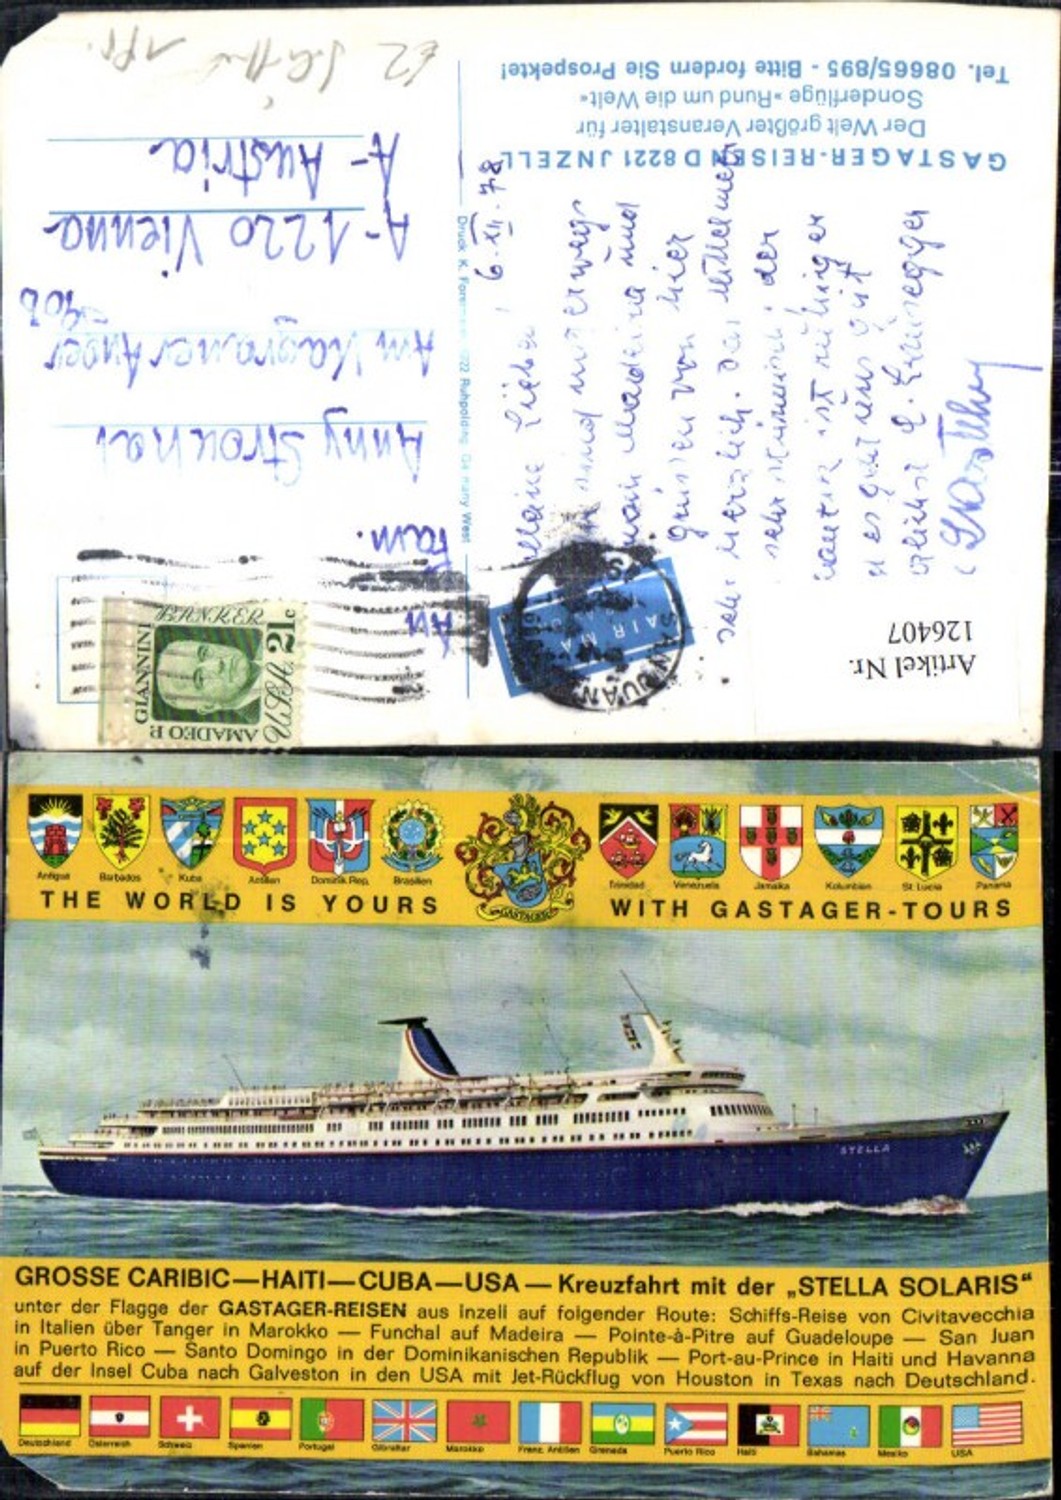 62 Schiffe
GASTAGER-REISEN D 8221 JNZELL
Der Welt größter Veranstalter für
Sonderflüge »Rund um die Welt«
Tel. 08665/895 - Bitte fordern Sie Prospekte!
6. XII. 78
Meine Lieben!
sind unterwegs
nach Madeira und
grüssen von hier
sehr herzlich. Das Mittelmeer
sehr stürmisch, der
ist ruhiger
es geht uns gut
An
Fam.
Anny Strouhal
Am Kagraner Anger
A-1220 Vienna
A-Austria
Druck K. Ruhpolding Germany West
AIR MAIL
SAN JUAN
AMADEO P. GIANNINI
BANKER
U.S.A. 21c
Artikel Nr.
126407
Antigua Barbados Kuba Antillen Dominik. Rep. Brasilien
GASTAGER
Trinidad Venezuela Jamaika Kolumbien St. Lucia Panama
THE WORLD IS YOURS WITH GASTAGER-TOURS
STELLA
GROSSE CARIBIC—HAITI—CUBA—USA — Kreuzfahrt mit der „STELLA SOLARIS“
unter der Flagge der GASTAGER-REISEN aus Inzell auf folgender Route: Schiffs-Reise von Civitavecchia
in Italien über Tanger in Marokko — Funchal auf Madeira — Pointe-à-Pitre auf Guadeloupe — San Juan
in Puerto Rico — Santo Domingo in der Dominikanischen Republik — Port-au-Prince in Haiti und Havanna
auf der Insel Cuba nach Galveston in den USA mit Jet-Rückflug von Houston in Texas nach Deutschland.
Deutschland Österreich Schweiz Spanien Portugal Gibraltar Marokko Franz. Antillen Grenada Puerto Rico Haiti Bahamas Mexiko USA